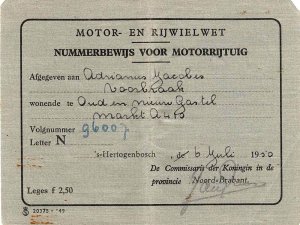 MOTOR- EN RIJWIELWET
NUMMERBEWIJS VOOR MOTORRIJTUIG
Afgegeven aan Adrianus Jacobus
Voorbraak
wonende te Oud en nieuw Gastel
Markt A 40
Volgnummer 96007
Letter N
's-Hertogenbosch, de 6 Juli 1950
De Commissaris der Koningin in de
provincie Noord-Brabant.
Leges f 2,50
20373 - '49